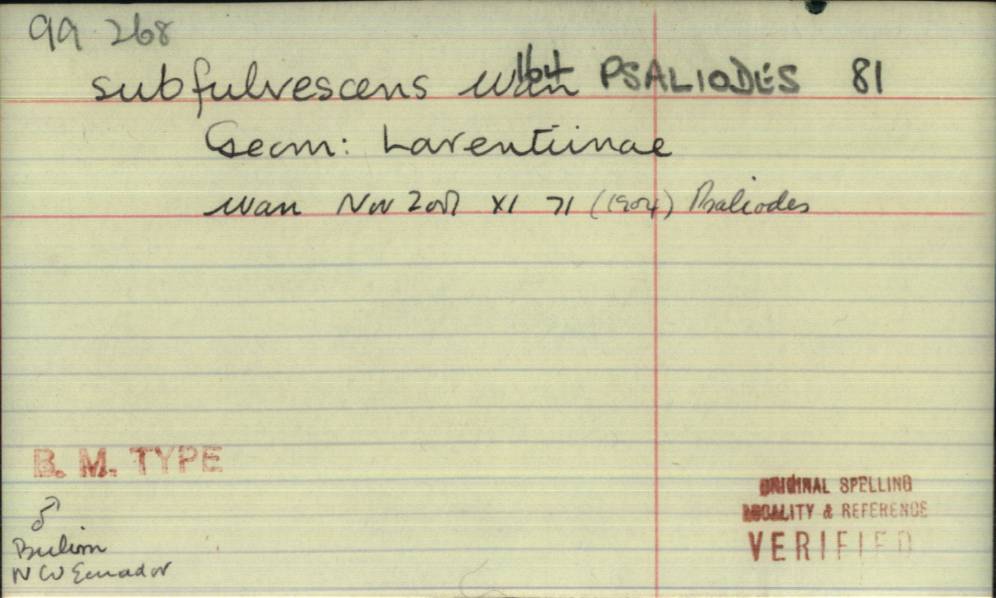 99 268
subfulvescens Warr 164 PSALIODES 81
Geom: Larentiinae
Warr Nov Zool XI 71 (1904) Psaliodes
B. M. TYPE
♂
Bulim
NW Ecuador
ORIGINAL SPELLING
LOCALITY & REFERENCE
VERIFIED